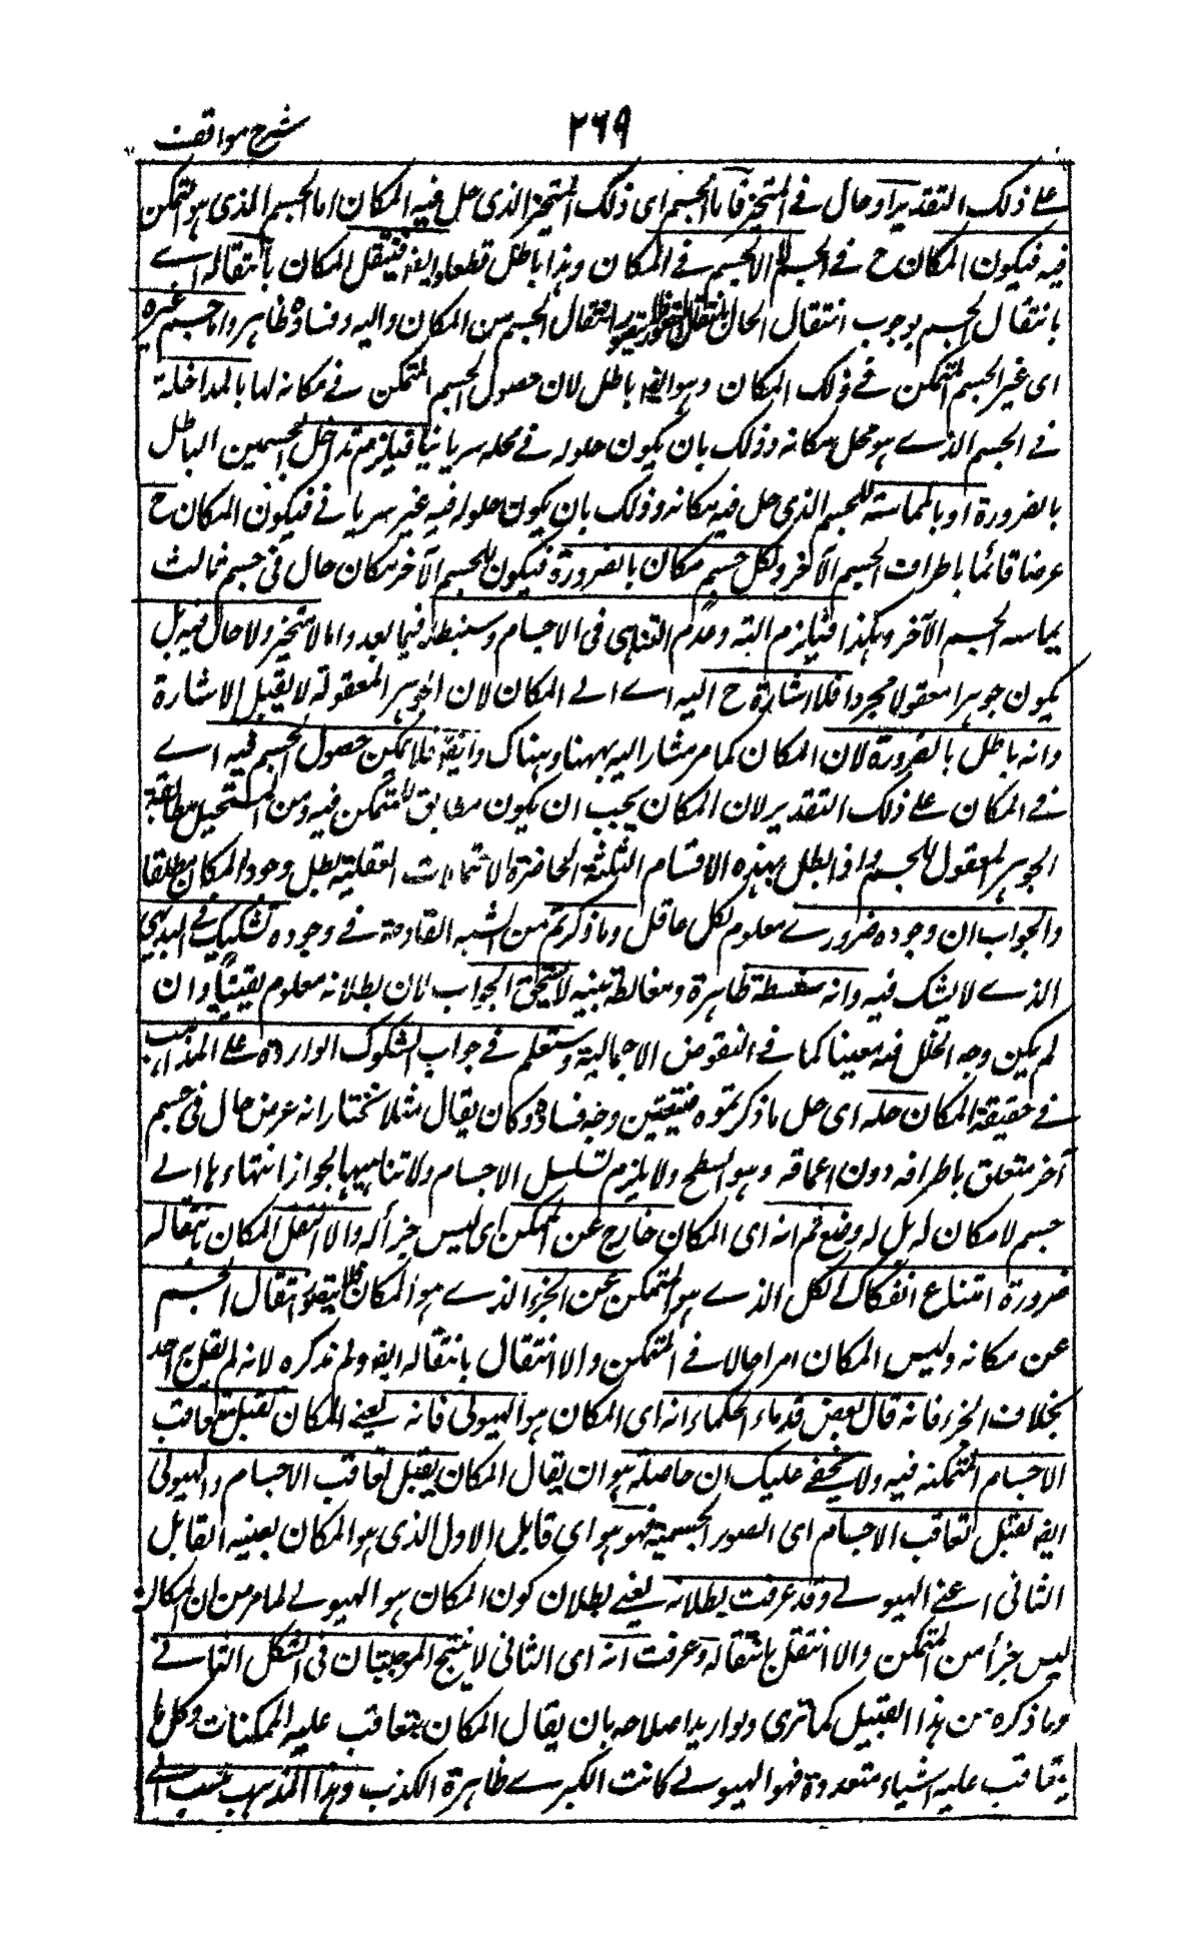 شرح مواقف
۲۶۹
علے ذلك التقدير او حال في المتحيز فاما الجسم اى ذلك المتحيز الذى حل فيه المكان اما الجسم الذى هو المتمكن
فيه فيكون المكان ح في الجسم لا الجسم في المكان وهذا باطل قطعا وايضا فينتقل المكان بانتقاله اے
بانتقال الجسم لوجوب انتقال الحال بانتقال المحل فلا يتصور انتقال الجسم من المكان واليه وفساده ظاهر واما جسم غيره
اى غير الجسم المتمكن في ذلك المكان وهو ايضا باطل لان حصول الجسم المتمكن في مكانه اما بالمداخلة
في الجسم الذے هو محل مكانه وذلك بان يكون حلوله في محله سريانيا فيلزم تداخل الجسمين الباطل
بالضرورة او بالمماسة للجسم الذى حل فيه مكانه وذلك بان يكون حلوله فيه غير سريانے فيكون المكان ح
عرضا قائما باطراف الجسم الآخر ولكل جسم مكان بالضرورة فيكون للجسم الآخر مكان حال فى جسم ثالث
يماسه الجسم الآخر وهكذا فيلزم التسلسل وعدم التناهى فى الاجسام وسنبطله فيما بعد واما لا متحيز ولا حال فيه بل
يكون جوهرا معقولا مجردا فلا اشارة ح اليه اے الے المكان لان الجوهر المعقولة لا يقبل الاشارة
وانه باطل بالضرورة لان المكان كما مر مشار اليه بههنا وهناك وايضا فلا يمكن حصول الجسم فيه اے
في المكان علے ذلك التقدير لان المكان يجب ان يكون مطابق للمتمكن فيه ومن المستحيل مطابقة
الجوهر المعقول للجسم واذا بطل بهذه الاقسام الثلثة الحاصرة لاحتمالات العقلية بطل وجود المكان مطلقا
والجواب ان وجوده ضرورے معلوم لكل عاقل وما ذكرتم من الشبه القادحة في وجوده تشكيك في البديهى
الذے لا يشك فيه وانه سفسطة ظاهرة ومغالطة بينة لا تستحق الجواب لان بطلانه معلوم يقينا وان
لم يكن وجه الخلل فيه معينا كما في النقوض الاجمالية وستعلم في جواب الشكوك الواردة علے المذاهب
في حقيقة المكان حله اى حل ما ذكرتموه فيتعين وجه فساده وكان يقال مثلا نختار انه عرض حال فى جسم
آخر متعلق باطرافه دون اعماقه وهو السطح ولا يلزم تسلسل الاجسام ولا تناهيها لجواز انتهاءها الے
جسم لا مكان له بل له وضع ثم انه اى المكان خارج عن المتمكن اى ليس جزأ له والا انتقل المكان بانتقاله
ضرورة امتناع انفكاك الكل الذے هو المتمكن عن الجزء الذے هو المكان فلا يتصور انتقال الجسم
عن مكانه وليس المكان امرا حالا في المتمكن والا انتقل بانتقاله ايضا ولم نذكره لانه لم يقل به احد
بخلاف الجزء فانه قال بعض قدماء الحكماء انه اى المكان هو الهيولى فانه يعنے المكان يقبل تعاقب
الاجسام المتمكنة فيه ولا يخفے عليك ان حاصله هو ان يقال المكان يقبل تعاقب الاجسام والهيولى
ايضا يقبل تعاقب الاجسام اى الصور الجسمية فهو هو اى قابل الاول الذى هو المكان بعينه القابل
الثانى اعنے الهيولے وقد عرفت بطلانه يعنے بطلان كون المكان هو الهيولے لما مر من ان المكان
ليس جزأ من المتمكن والا انتقل بانتقاله وعرفت انه اى الثانى لا ينتج الموجبتان فى الشكل الثانے
وما ذكره من هذا القبيل كما ترى ولو اريد اصلاحه بان يقال المكان يتعاقب عليه المتمكنات وكل ما
يتعاقب عليه اشياء متعددة فهو الهيولے كانت الكبرے ظاهرة الكذب وهذا المذهب ينسب الے